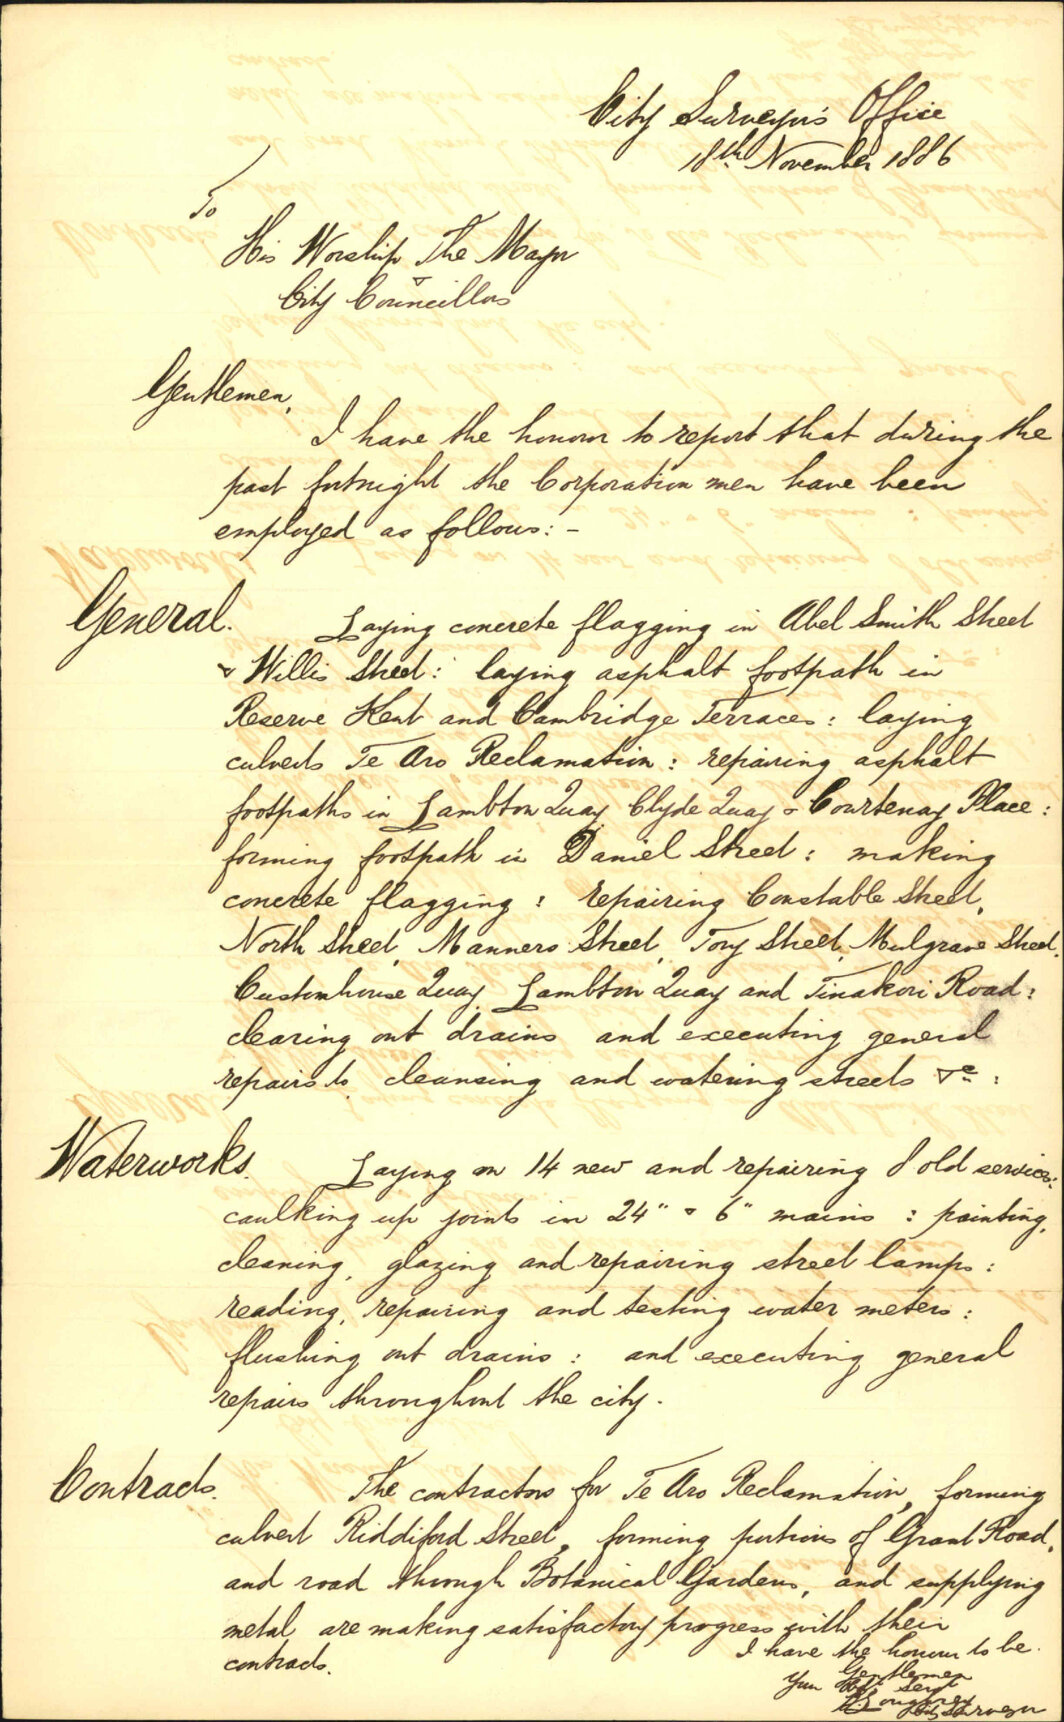 City Surveyor's Office
18th November 1886
To
His Worship The Mayor
&
City Councillors
Gentlemen,
I have the honour to report that during the
past fortnight the Corporation men have been
employed as follows: -
General. Laying concrete flagging in Abel Smith Street
& Willis Street: laying asphalt footpath in
Reserve Kent and Cambridge Terraces: laying
culverts Te Aro Reclamation: repairing asphalt
footpaths in Lambton Quay Clyde Quay & Courtenay Place:
forming footpath in Daniel Street: making
concrete flagging: repairing Constable Street,
North Street, Manners Street, Tory Street, Mulgrave Street,
Customhouse Quay, Lambton Quay and Tinakori Road:
clearing out drains and executing general
repairs to, cleansing and watering streets &c:
Waterworks. Laying on 14 new and repairing 8 old services:
caulking up joints in 24" & 6" mains: painting,
cleaning, glazing and repairing street lamps:
reading, repairing and testing water meters:
flushing out drains: and executing general
repairs throughout the city.
Contracts. The contractors for Te Aro Reclamation, forming
culvert Riddiford Street, forming portions of Grant Road,
and road through Botanical Gardens, and supplying
metal are making satisfactory progress with their
contracts.
I have the honour to be.
Gentlemen
Your Obt Servt
City Surveyor